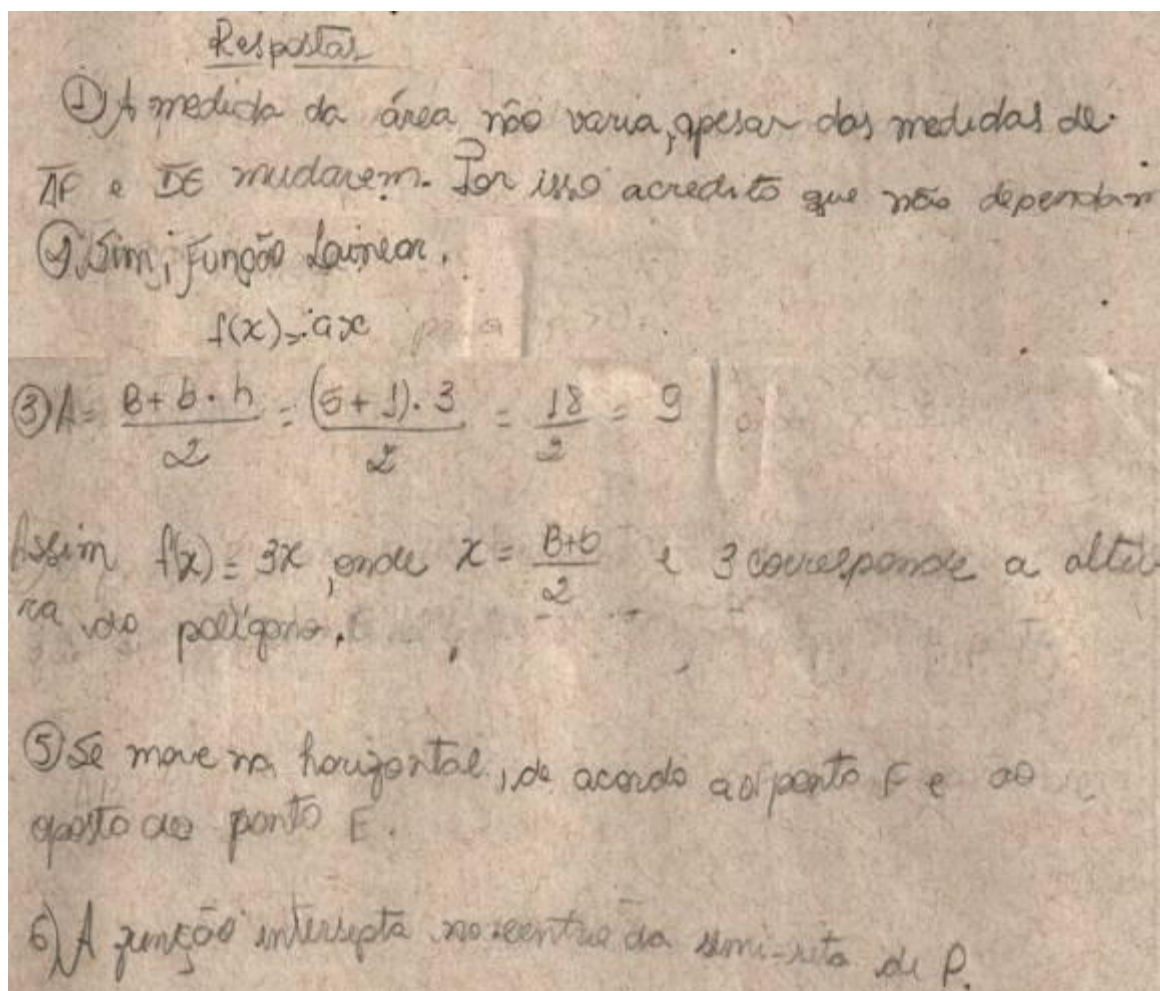 Respostas
① A medida da área não varia, apesar das medidas de
AF e DE mudarem. Por isso acredito que não dependam
Sim, Função Lainear.
f(x) = ax
③ A = B+b.h/2 = (5+1).3/2 = 18/2 = 9
Assim f(x) = 3x, onde x = B+b/2 e 3 corresponde a altu-
ra do polígono.
⑤ Se move na horizontal, de acordo ao ponto F e ao
oposto ao ponto E.
6) A função intersepta no centro da semi-reta de P.